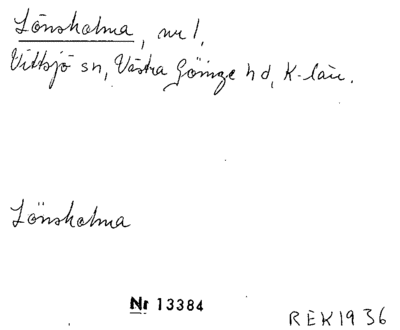 Lönsholma, nr 1,
Vittsjö sn, Västra Göinge hd, K-län.
Lönsholma
Nr 13384
REK1936